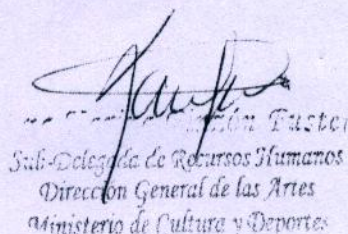 Sub-Delegada de Recursos Humanos
Dirección General de las Artes
Ministerio de Cultura y Deportes